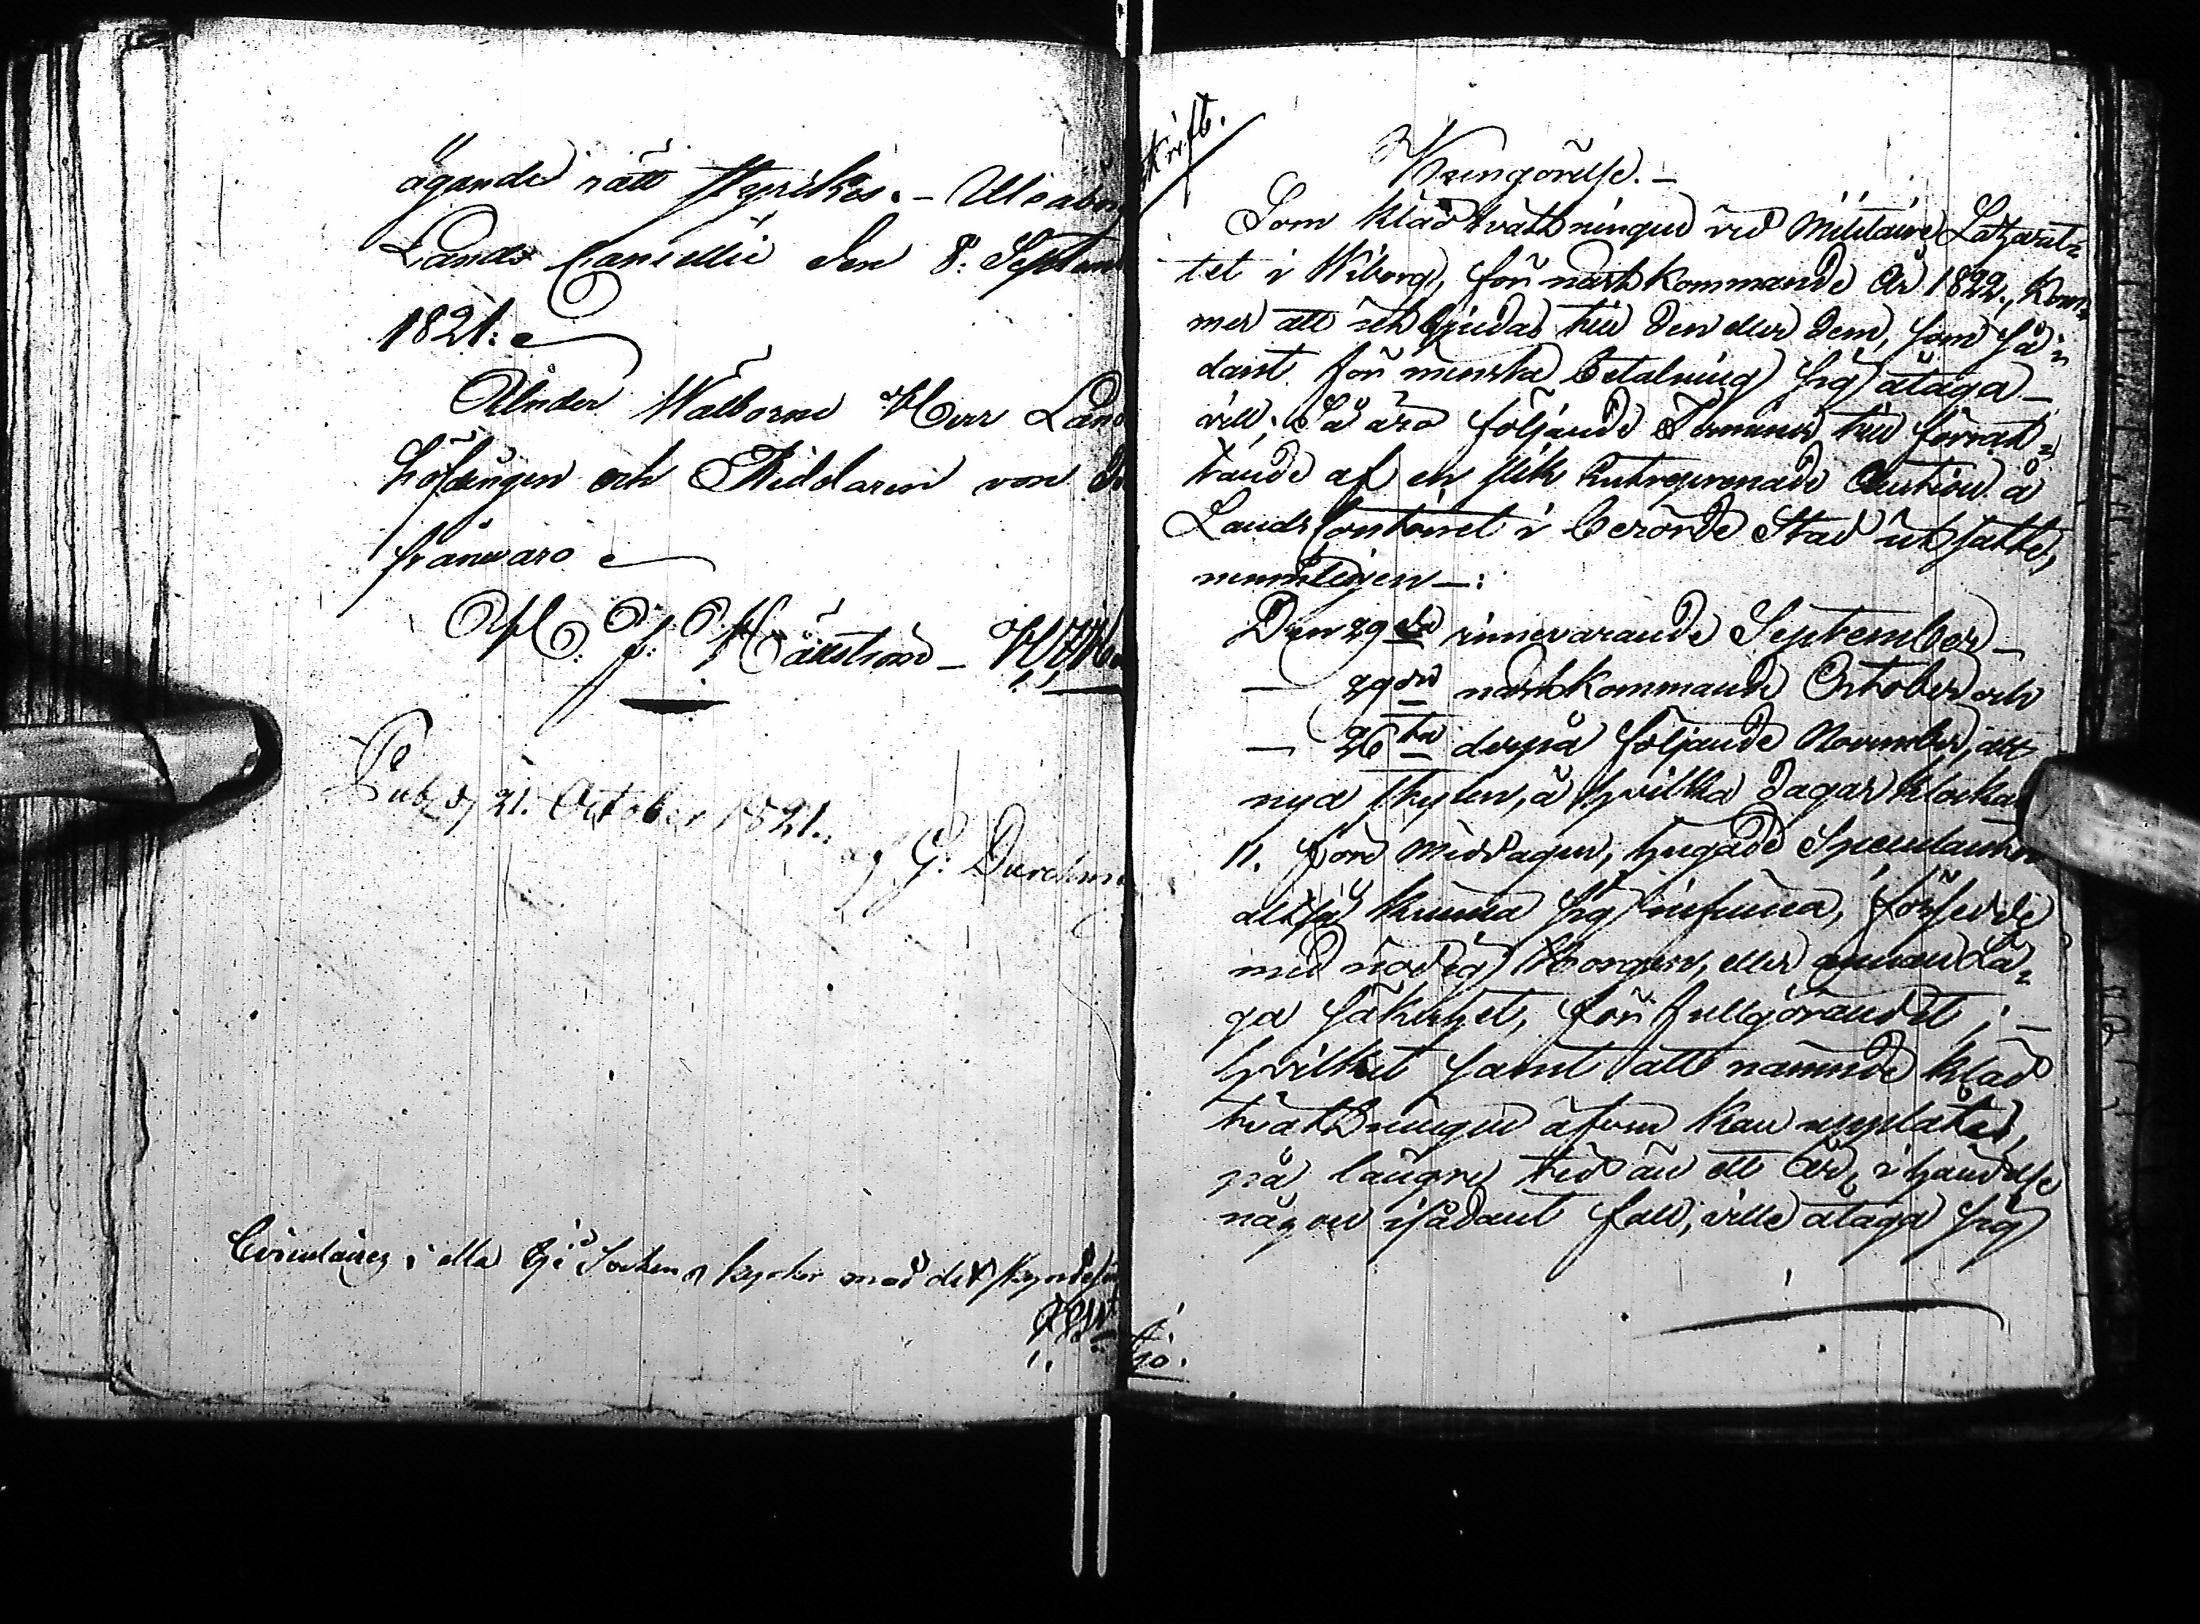 ägande rätt styrikes. - Uleåborgs
Lands Cancellie den 8: Septem
1821:
Under Wälborne Herr Lands
höfdingen och Riddaren von
frånvaro
H: J: Häkström -
Publ. d 21. October 1821.
G: Durchm
Circuleras i alla Socken kyrkor med det skynde
Kungörelse. -
Som klädtvättningen vid Militaire Lazaret-
tet i Wiborg, för nästkommande År 1822, kom-
mer att utbjudas till den eller dem, som så-
dant för minsta betalning sig åtaga -
vill; Så äro följande Terminer till förrät-
tande af en slik Entreprenade Auction å
Lands Contoiret i berörde Stad utsatte,
nemligen -:
Den 29de innevarande September -
— 29de nästkommande October och
— 26te derpå följande November, allt
nya stylen, å hvilka dagar klockan
11. före middagen, hugade Speculanter
altså kunna sig infinna, försedde
med nödig Borgen, eller annan La-
ga säkerhet, för fullgörandet; -
hvilket samt att nämnde kläd
tvättningen äfven kan upplåtas,
på längre tid än ett år, i händelse
någon i sådant fall, ville åtaga sig